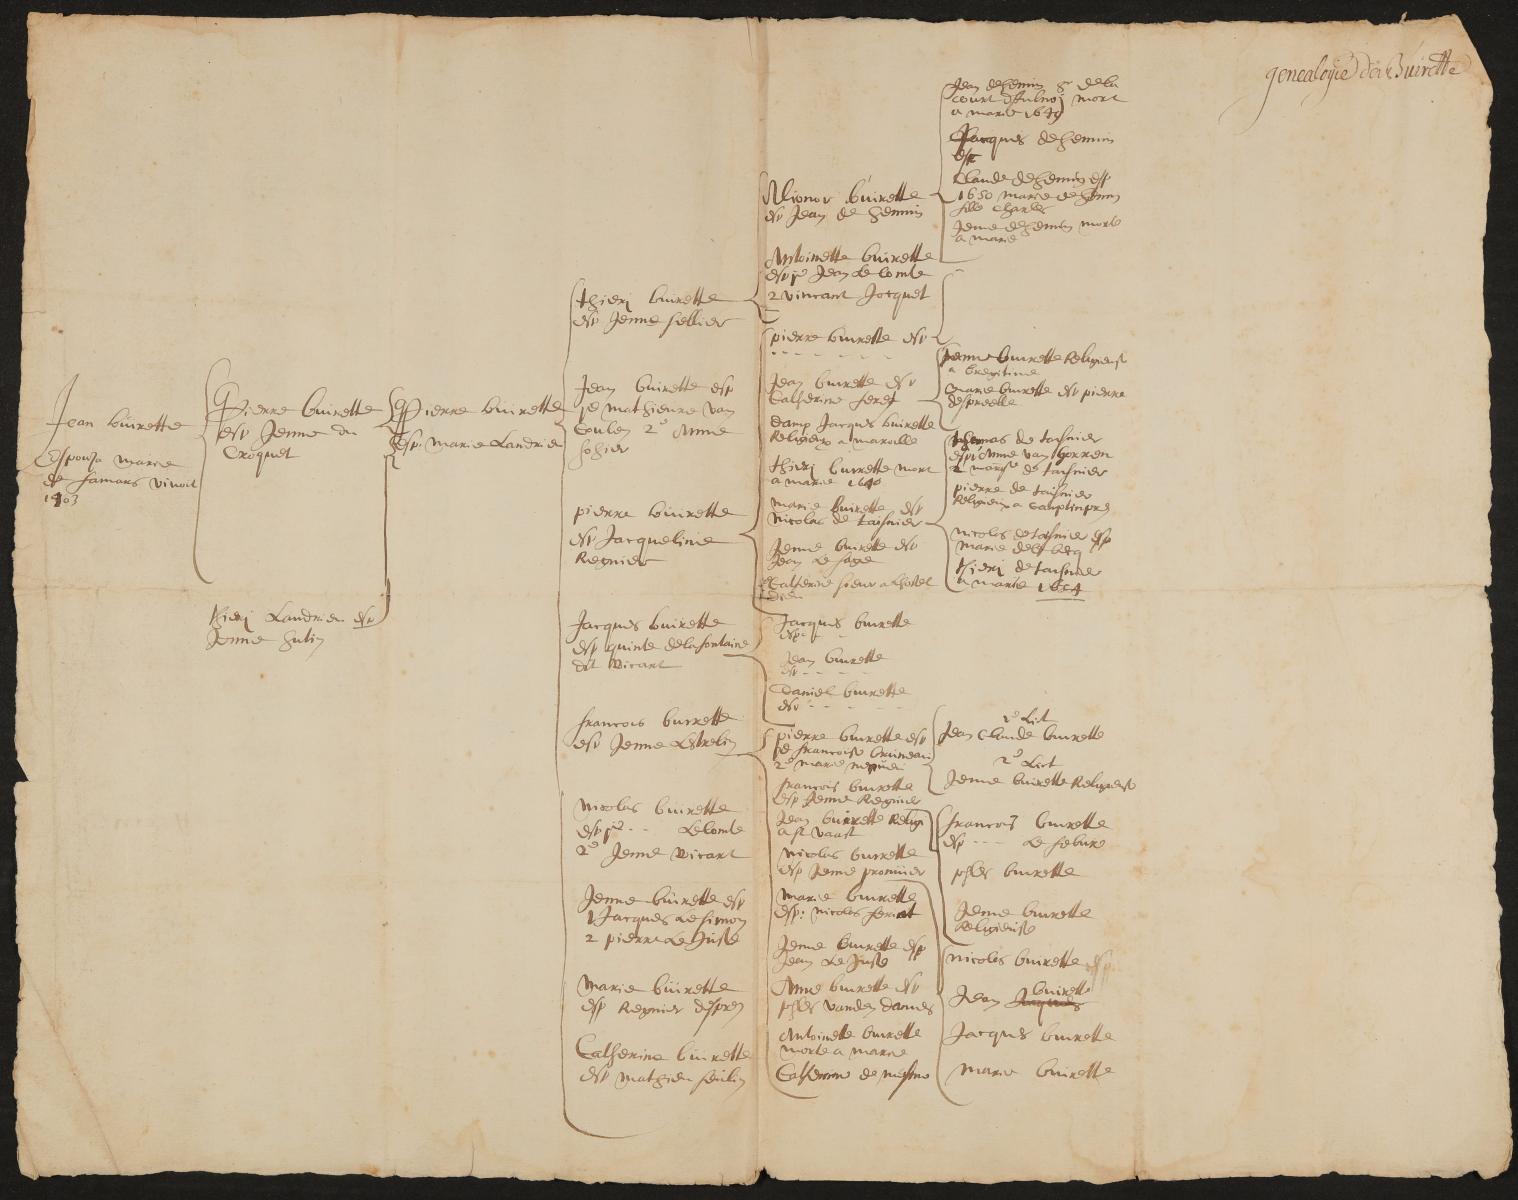 genealogie de Buirette
Jean buirette
Espousa marie
de famars vivoit
1403
Pierre buirette
esp Jenne du
Croquet
thieri Landrieu esp
Jenne hutin
Pierre buirette
esp. marie Landrieu
thieri buirette
esp Jenne sellier
Jean buirette esp
pe mathieuve van
Coulen 2e Anne
sohier
pierre buirette
esp Jacqueline
Regnier
Jacques buirette
esp quinte delafontaine
dit Wicart
francois buirette
esp Jenne Lestrelin
Nicolas buirette
esp pe -- Lecomte
2e Jenne Wicart
Jenne buirette esp
1 Jacques Le simon
2 pierre Le Juste
Marie buirette
esp Regnier desprez
Catherine buirette
esp mathieu
Alionor buirette
esp Jean de hennin
Antoinette buirette
esp pe Jean Le Comte
2 vincant Jocquet
pierre buirette esp
- - - - - - -
Jean buirette esp
Catherine feret
damp Jacques buirette
Religieux a maroille
thieri buirette mort
a marie 1640
marie buirette esp
Nicolas de taisnier
Jenne buirette esp
Jean Le sage
Catherine soeur a Lhostel
dieu
Jacques buirette
esp - -
Jean buirette
esp - - - -
Daniel buirette
esp - - - - -
pierre buirette esp
pe francoise bruneau
2e marie
francois buirette
esp Jenne Regnier
Jean buirette Religi
a st vaast
Nicolas buirette
esp Jenne
Marie buirette
esp: nicolas
Jenne buirette esp
Jean Le Juste
Anne buirette esp
vanden
Antoinette buirette
morte a marie
Catherine de mesme
Jean de hennin sr dela
court mort
a marie 1649
Jacques de hennin
esp
Claude de hennin esp
1650 marie de hennin
fille Charles
Jenne de hennin morte
a marie
Jenne buirette Religieuse
a
marie buirette esp pierre
despreelle
thomas de taisnier
esp Anne van
2 de taisnier
pierre de taisnier
Religieux a
nicolas de taisnier esp
marie
thieri de taisnier
a marie 1654
1e Lict
Jean Claude buirette
2e Lict
Jenne buirette Religieuse
francois buirette
esp --- Le febure
buirette
Jenne buirette
Religieuse
nicolas buirette esp
buirette
Jean Jacques
Jacques buirette
marie buirette